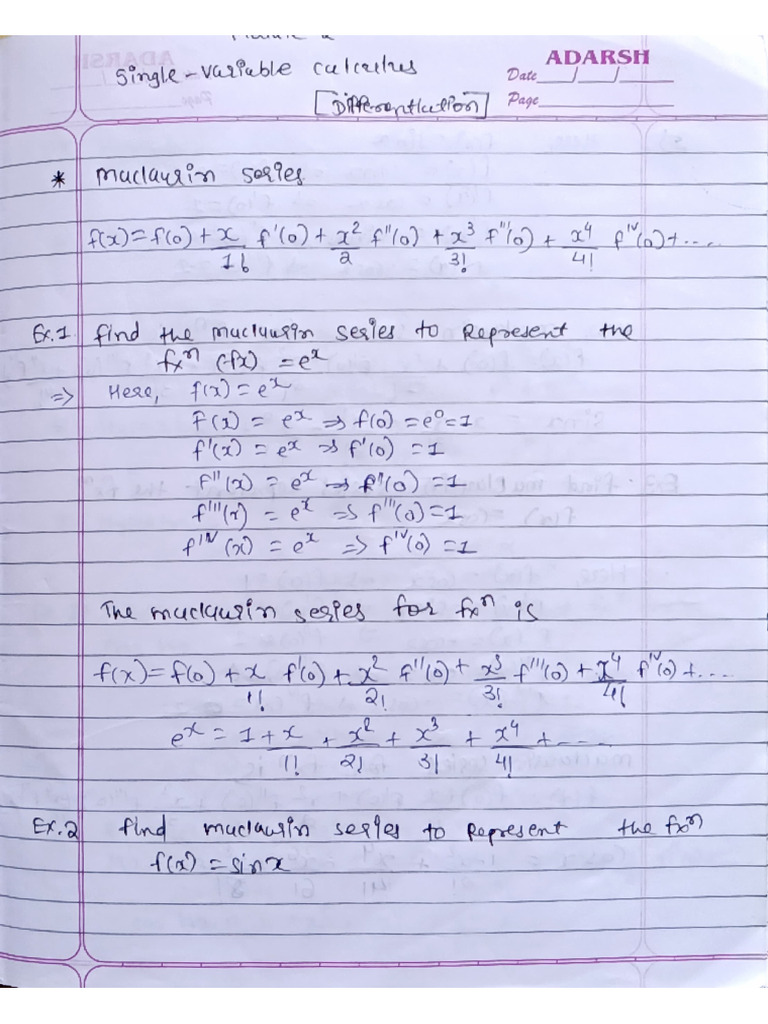 ADARSH
Single-variable calculus
Date / /
[Differentiation]
Page
* Maclaurin series
f(x) = f(0) + x/1! f'(0) + x²/2 f''(0) + x³/3! f''(0) + x⁴/4! f^IV(0) + ....
Ex.1 find the maclaurin series to Represent the
fxⁿ f(x) = eˣ
⇒ Here, f(x) = eˣ
F(x) = eˣ ⇒ f(0) = e⁰ = 1
f'(x) = eˣ ⇒ f'(0) = 1
f''(x) = eˣ ⇒ f''(0) = 1
f'''(x) = eˣ ⇒ f'''(0) = 1
f^IV(x) = eˣ ⇒ f^IV(0) = 1
The maclaurin series for fxⁿ is
f(x) = f(0) + x/1! f'(0) + x²/2! f''(0) + x³/3! f'''(0) + x⁴/4! f^IV(0) + ....
eˣ = 1 + x/1! + x²/2! + x³/3! + x⁴/4! + ....
Ex.2 find maclaurin series to Represent the fxⁿ
f(x) = sinx